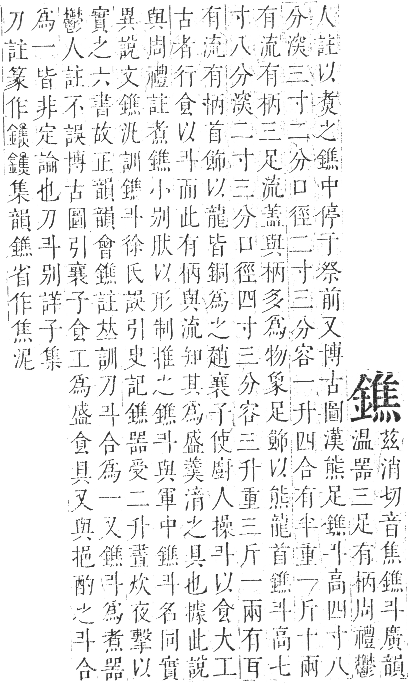 鐎
兹消切音焦鐎斗廣韻
温器三足有柄周禮鬱
人註以煑之鐎中停于祭前又博古圖漢熊足鐎斗高四寸八
分深三寸二分口徑二寸三分容一升四合有半重一斤十兩
有流有柄三足流蓋與柄多為物象足飾以熊龍首鐎斗高七
寸八分深二寸三分口徑四寸三分容三升重三斤一兩有百
有流有柄首飾以龍皆銅為之趙襄子使廚人操斗以食大工
古者行食以斗而此有柄與流知其為盛羹湇之具也據此說
與周禮註煮鐎小别肰以形制惟之鐎斗與軍中鐎斗名同實
異說文鐎汎訓鐎斗徐氏誤引史記鐎器受二升晝炊夜擊以
實之六書故正韻韻會鐎註𠀤訓刀斗合為一又鐎斗為煮器
鬱人註不誤博古圖引襄子食工為盛食具又與挹酌之斗合
為一皆非定論也刀斗别詳子集
刀註篆作集韻鐎省作焦泥